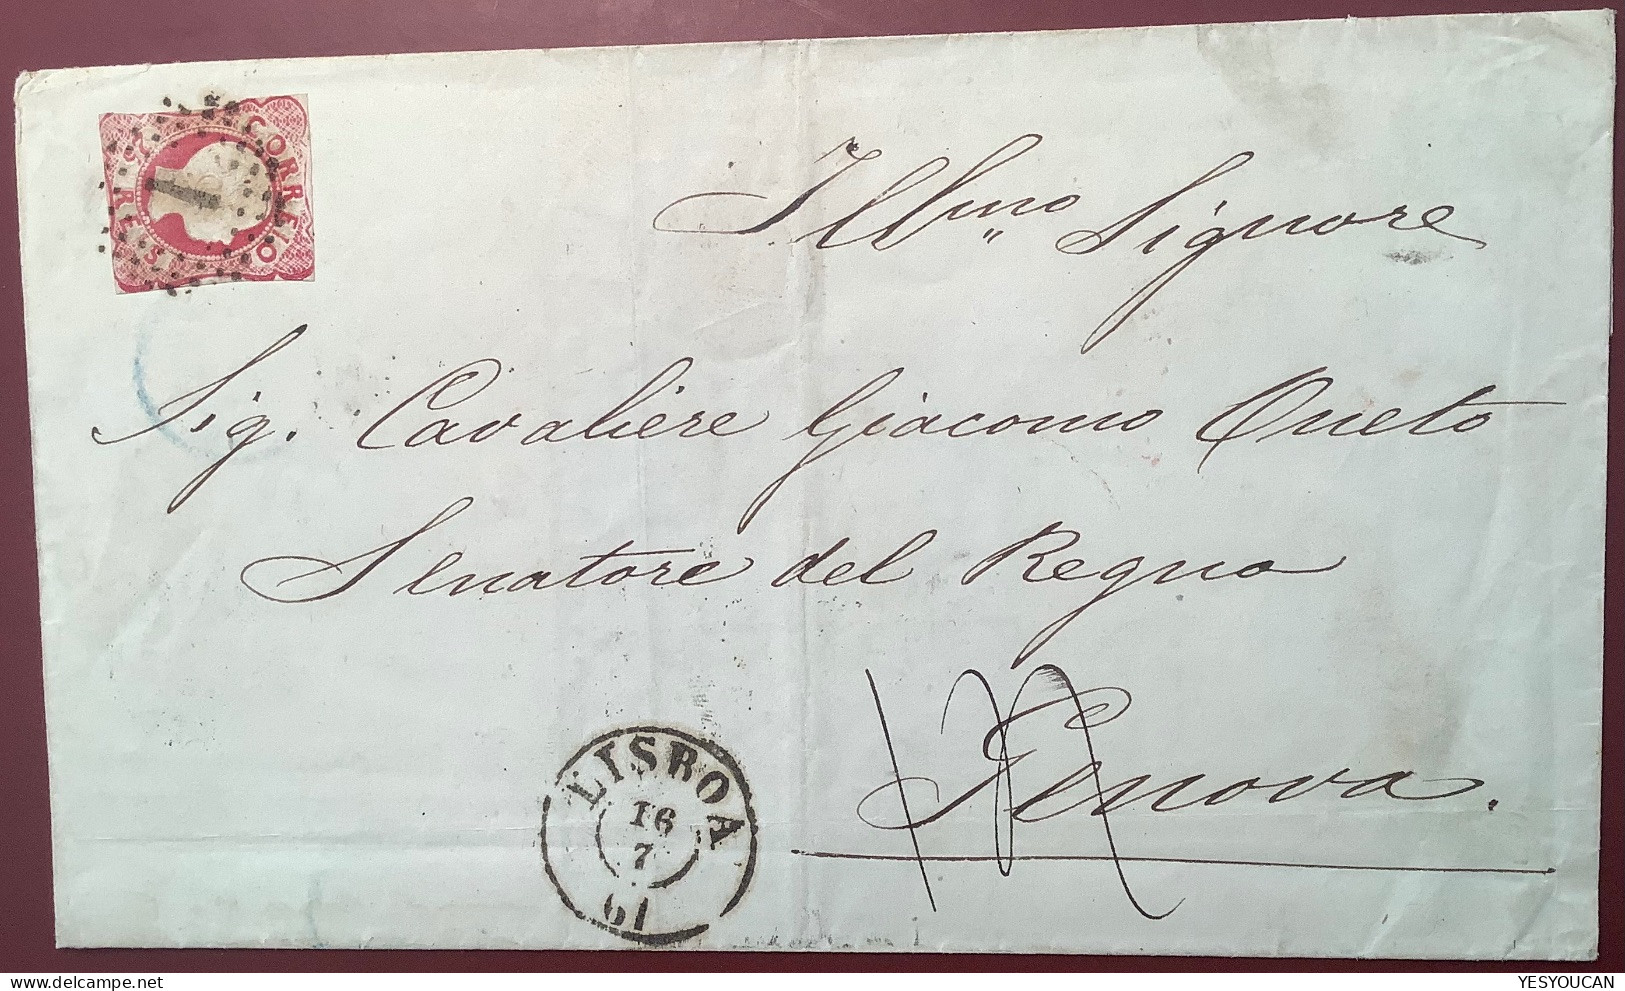 CORREIO
25 REIS
1
Illmo Signore
Sig. Cavaliere Giacomo Oneto
Senatore del Regno
Genova.
LISBOA
16
7
61
YESYOUCAN